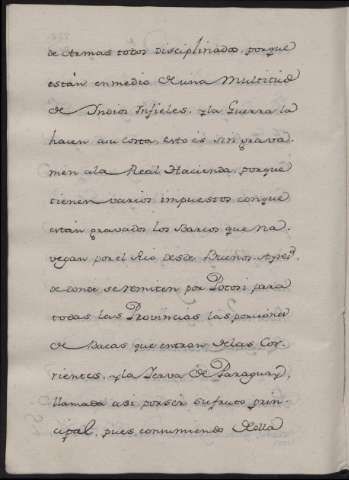 de Armas todos disciplinados, porque
están enmedio de una Multitud
de Indios Infieles, y la Guerra la
hacen a su costa, esto es sin grava-
men ala Real Hacienda, porque
tienen varios impuestos conque
están gravados los Barcos que na-
vegan por el Rio desde Buenos Ayres,
de donde se remiten por Potosi para
todas las Provincias las porciones
de Bacas que entran delas Cor-
rientes, y la Yerva de Paraguay,
llamada asi por ser su fruto prin-
cipal, pues consumiendo della